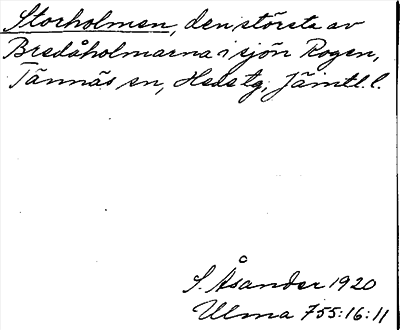 Storholmen, den största av
Bredåholmarna i sjön Rogen,
Tännäs sn, Hede tg, Jämtl. l.
S. Åsander 1920
Ulma 755:16:11